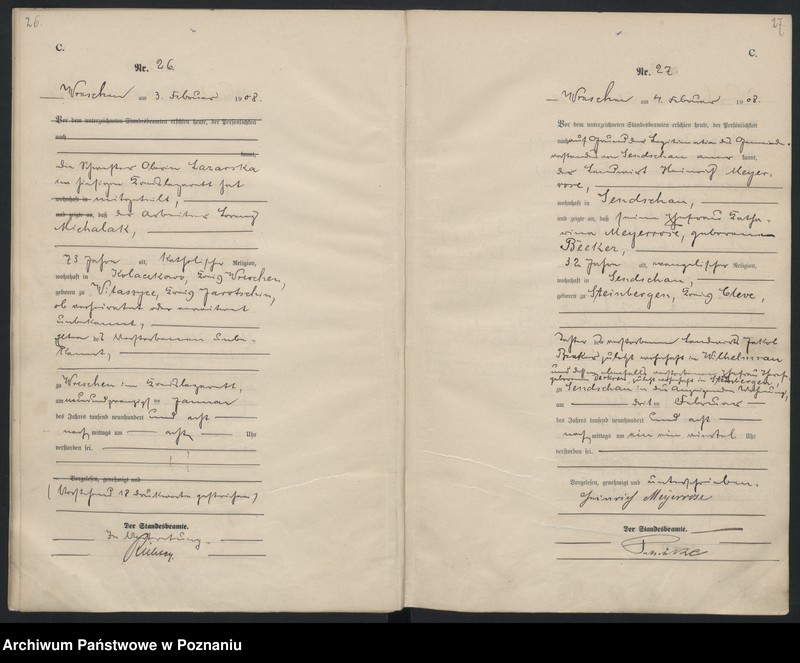 26.
C.
Nr. 26
Wreschen am 3. Februar 1908.
Vor dem unterzeichneten Standesbeamten erschien heute, der Persönlichkeit
nach
kannt,
die Schwester Oberin Lazarska
im hiesigen Kreislazarett hat
wohnhaft in mitgeteilt,
und zeigte an, daß der Arbeiter Lorenz
Michalak,
73 Jahre alt, katholischer Religion,
wohnhaft in Kolaczkowo, Kreis Wreschen,
geboren zu Witaszyce, Kreis Jarotschin,
ob verheiratet oder verwitwet
unbekannt,
Eltern des Verstorbenen unbe-
kannt,
zu Wreschen im Kreislazarett,
am neunundzwanzigsten Januar
des Jahres tausend neunhundert und acht
nachmittags um acht Uhr
verstorben sei.
Vorgelesen, genehmigt und
(Vorstehend 18 Druckworte gestrichen)
Der Standesbeamte.
In Vertretung.
27.
C.
Nr. 27
Wreschen am 4. Februar 1908.
Vor dem unterzeichneten Standesbeamten erschien heute, der Persönlichkeit
nach auf Grund der Legitimation des Gemeinde-
vorstandes in Sendschau anerkannt,
der Landwirt Heinrich Meyer-
rose,
wohnhaft in Sendschau,
und zeigte an, daß seine Ehefrau Katha-
rina Meyerrose, geborene
Becker,
32 Jahre alt, evangelischer Religion,
wohnhaft in Sendschau,
geboren zu Steinbergen, Kreis Cleve,
Tochter des verstorbenen Landwirts Jakob
Becker zuletzt wohnhaft in Wilhelminau
und dessen ebenfalls verstorbenen Ehefrau
geborenen zuletzt wohnhaft in Steinbergen,
zu Sendschau in des Anzeigenden Wohnung,
am dritten Februar
des Jahres tausend neunhundert und acht
nachmittags um ein ein viertel Uhr
verstorben sei.
Vorgelesen, genehmigt und unterschrieben.
Heinrich Meyerrose
Der Standesbeamte.
Archiwum Państwowe w Poznaniu